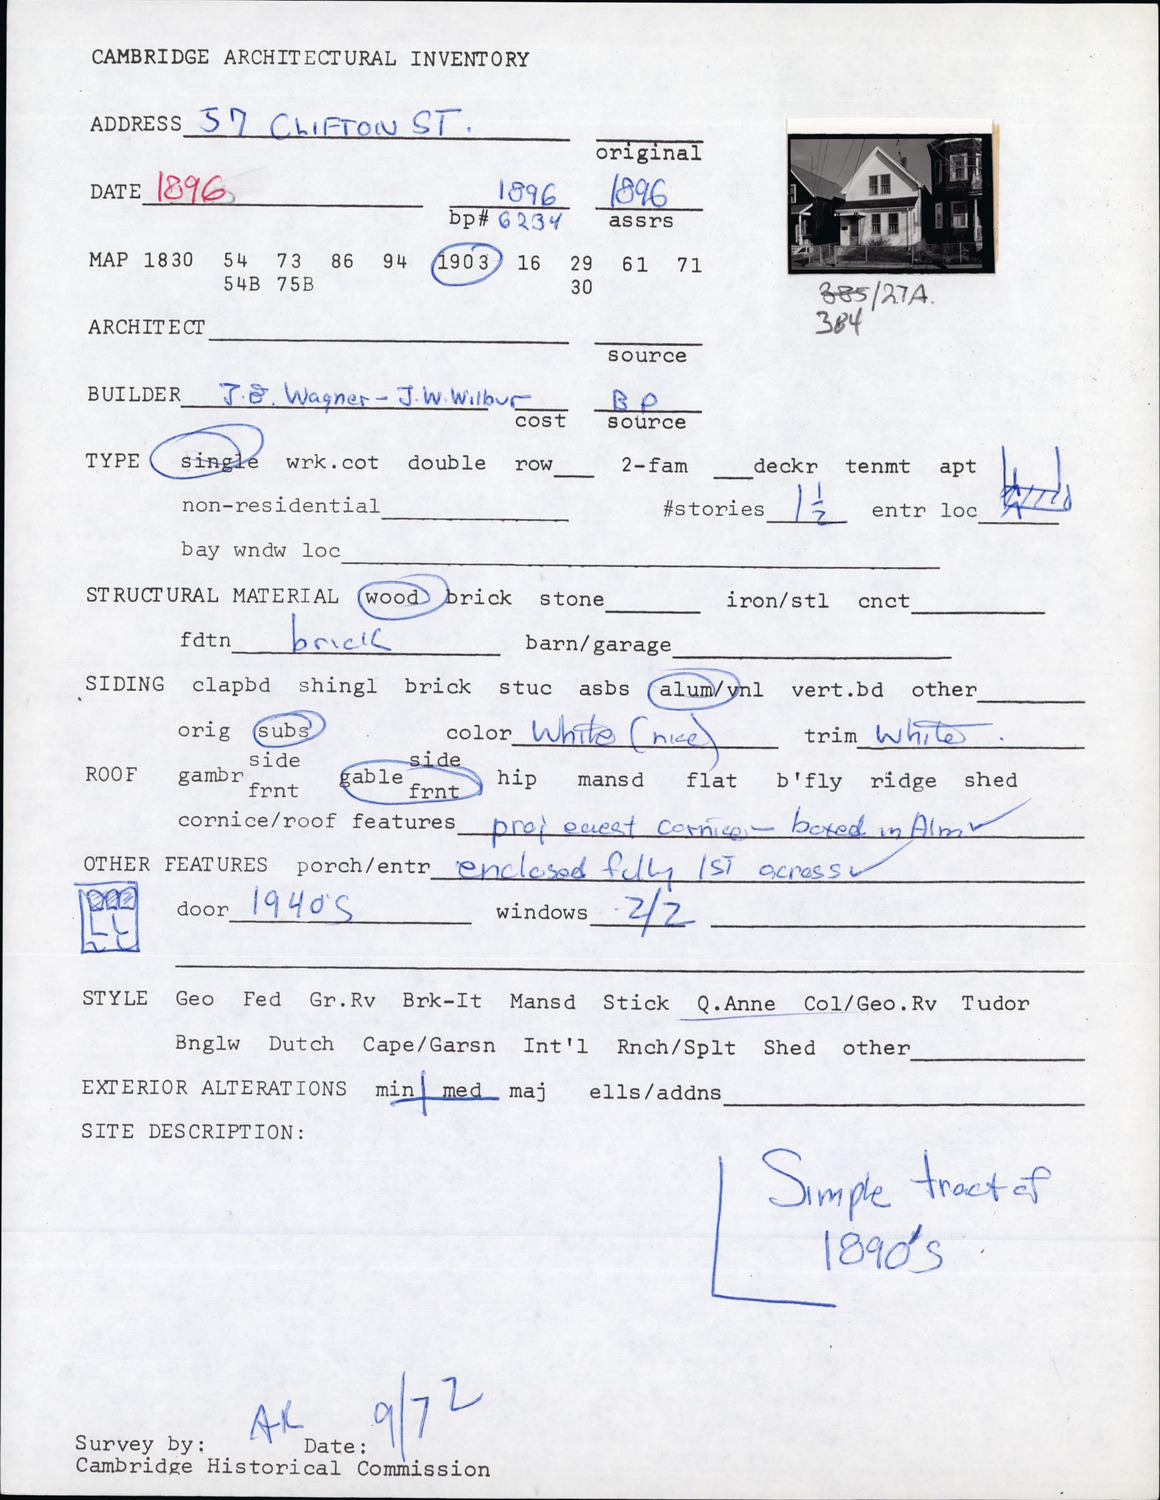 CAMBRIDGE ARCHITECTURAL INVENTORY
ADDRESS 57 CLIFTON ST.
original
DATE 1896 1896 1896
bp# 6234 assrs
MAP 1830 54 73 86 94 1903 16 29 61 71
54B 75B 30
385/27A.
384
ARCHITECT
source
BUILDER J.E. Wagner - J.W. Wilbur BP
cost source
TYPE single wrk.cot double row 2-fam deckr tenmt apt
non-residential #stories 1 1/2 entr loc
bay wndw loc
STRUCTURAL MATERIAL wood brick stone iron/stl cnct
fdtn brick barn/garage
SIDING clapbd shingl brick stuc asbs alum/vnl vert.bd other
orig subs color White (nice) trim white
side side
ROOF gambr gable hip mansd flat b'fly ridge shed
frnt frnt
cornice/roof features proj cornice - boxed in Alm
OTHER FEATURES porch/entr enclosed fully 1ST across
door 1940's windows 2/2
STYLE Geo Fed Gr.Rv Brk-It Mansd Stick Q.Anne Col/Geo.Rv Tudor
Bnglw Dutch Cape/Garsn Int'l Rnch/Splt Shed other
EXTERIOR ALTERATIONS min med maj ells/addns
SITE DESCRIPTION:
Simple tract of
1890's
Survey by: AR Date: 9/72
Cambridge Historical Commission